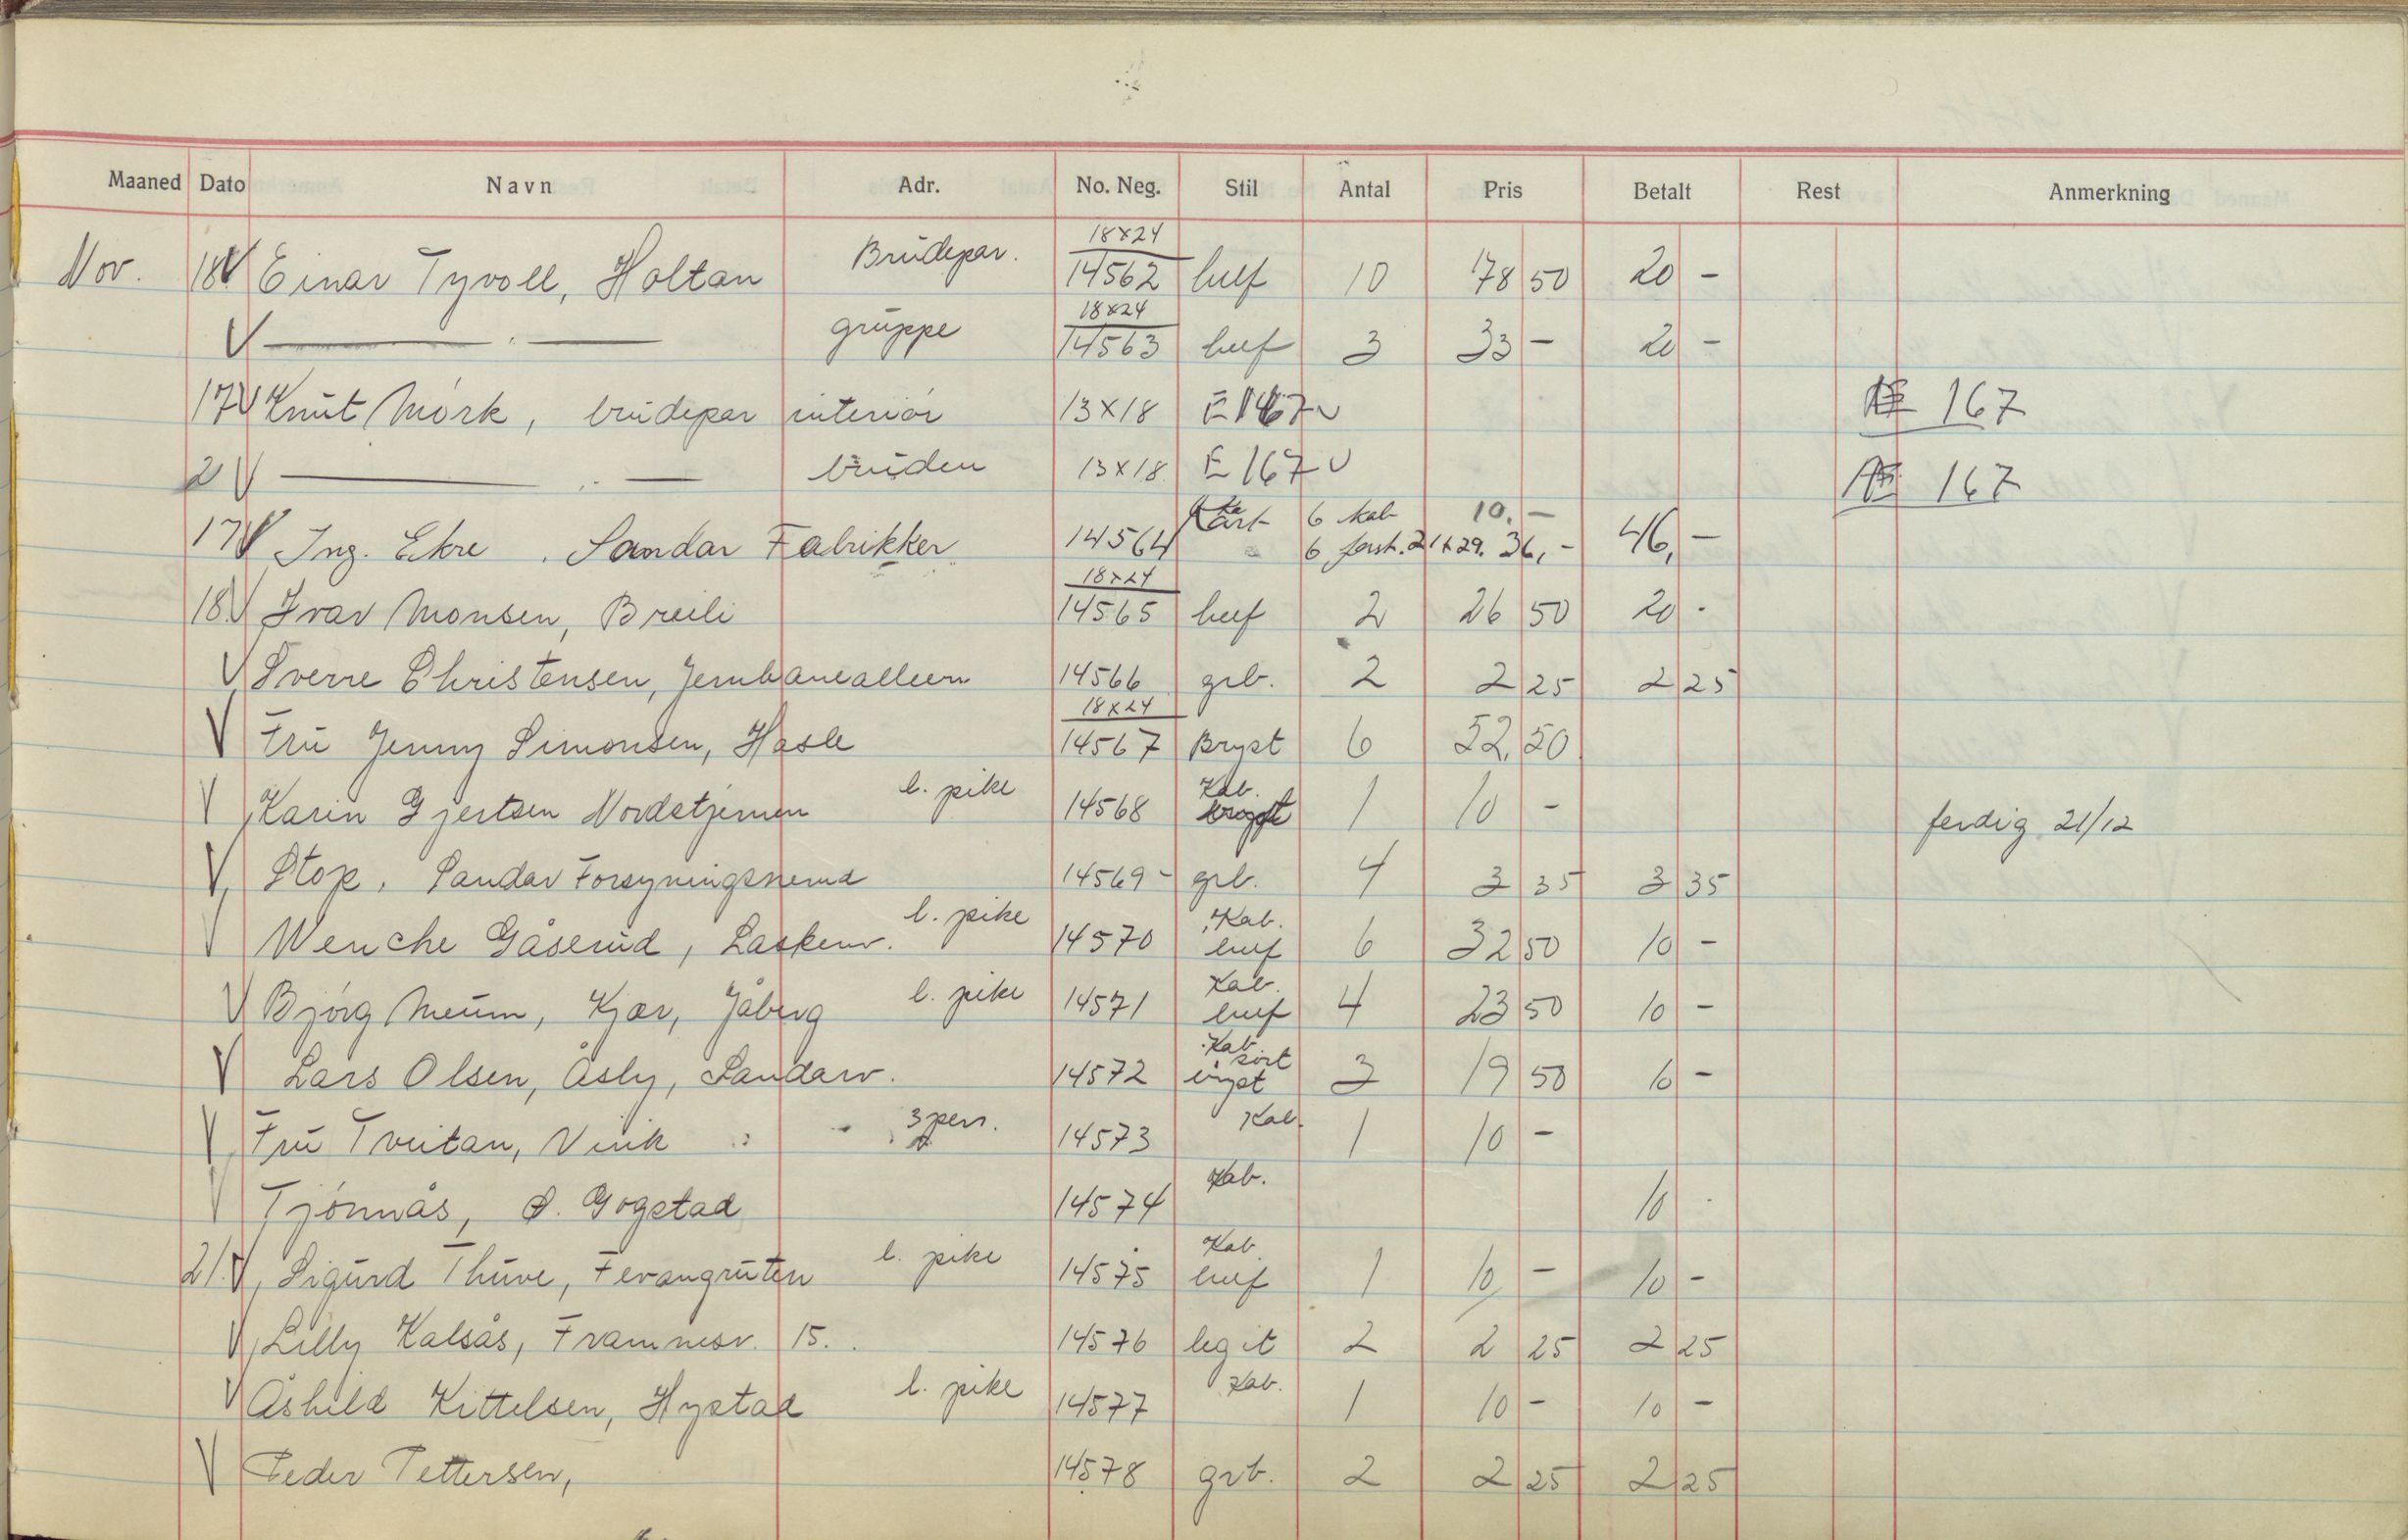 Maaned Dato Navn Adr. No. Neg. Stil Antal Pris Betalt Rest Anmerkning
Nov. 18 V Einar Tyvoll, Holtan Brudepar. 18x24 14562 huf 10 78 50 20 -
V — " — gruppe 18x24 14563 huf 3 33 - 20 -
17 V Knut Mörk, brudepar interiör 13x18 E 167 V 167
2 V — " — bruden 13x18 E 167 V 167
17 V Ing. Ekre . Sandar Fabrikker 14564 6 kab 10.-
6 forst. 21x29. 36,- 46,-
18. V Ivar Monsen, Breili 18x24 14565 huf 2 26 50 20 -
V Sverre Christensen, Jernbanealleen 14566 grb. 2 2 25 2 25
V Fru Jenny Simonsen, Hasle 18x24 14567 Bryst 6 52,50
V Karin Gjertsen Nordstjernen l. pike 14568 Kab. 1 10 - ferdig 21/12
V Stop. Sandar Forsyningsnemd 14569 - grb. 4 3 35 3 35
V Wenche Gåserud, Laskenv. l. pike 14570 Kab. huf 6 32 50 10 -
V Björg Meum, Kjær, Jåberg l. pike 14571 Kab. huf 4 23 50 10 -
V Lars Olsen, Åsly, Sandarv. 14572 Kab. sort bryst 3 19 50 10 -
V Fru Tveitan, Virik 3 pers. 14573 Kab. 1 10 -
V Tjönnås, Ø. Gogstad 14574 Kab. 10 -
21. V Sigurd Thuve, Fevangruten l. pike 14575 Kab huf 1 10 - 10 -
V Lilly Kalsås, Framnesv. 15. 14576 legit 2 2 25 2 25
V Åshild Kittelsen, Hystad l. pike 14577 Kab. 1 10 - 10 -
V Peder Pettersen, 14578 grb. 2 2 25 2 25